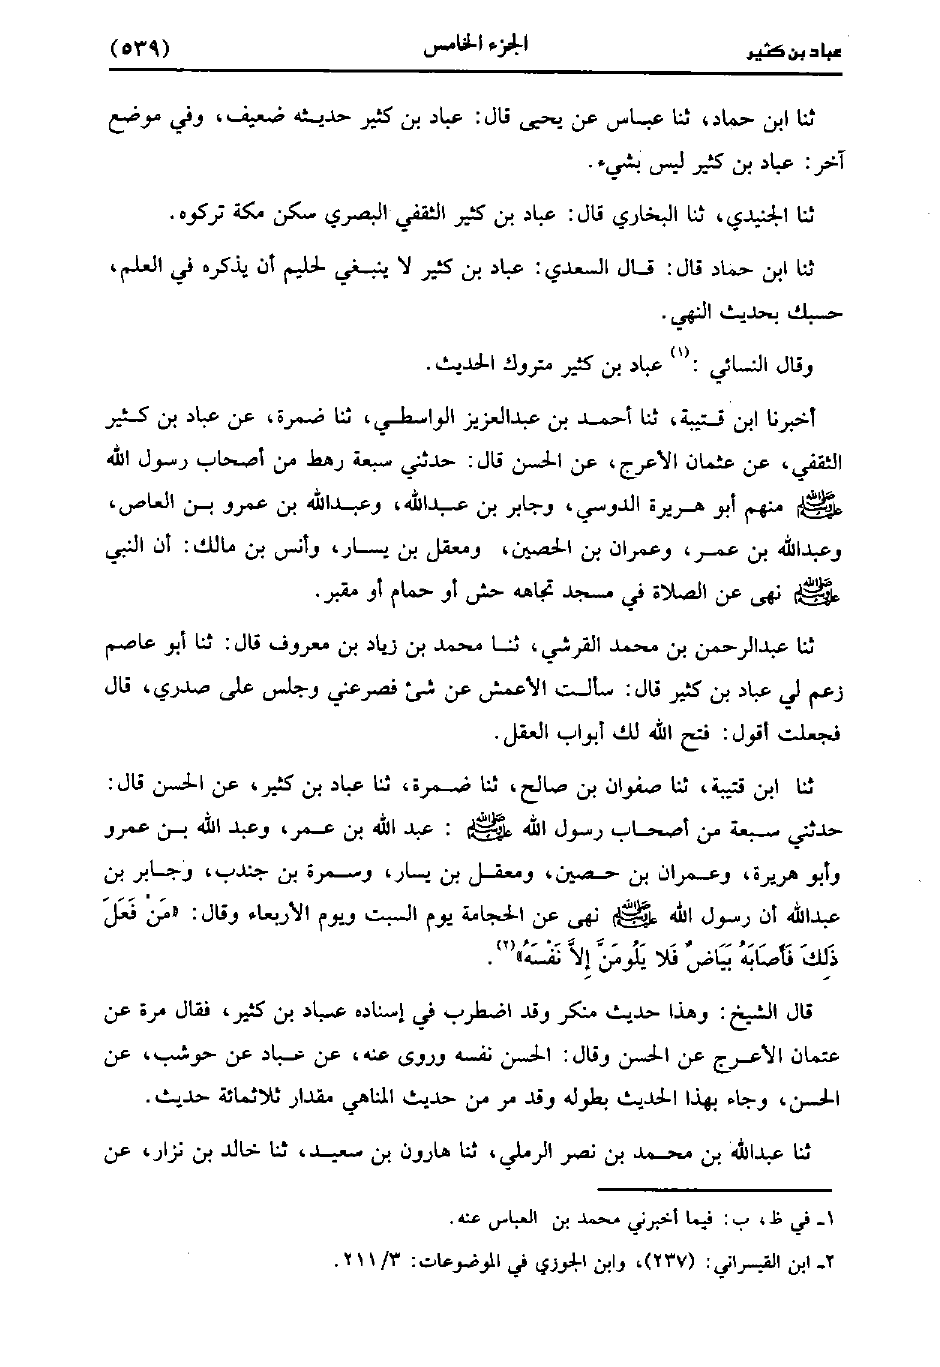 عباد بن كثير الجزء الخامس (٥٣٩)
ثنا ابن حماد، ثنا عباس عن يحيى قال: عباد بن كثير حديثه ضعيف، وفي موضع
آخر: عباد بن كثير ليس بشيء.
ثنا الجنيدي، ثنا البخاري قال: عباد بن كثير الثقفي البصري سكن مكة تركوه.
ثنا ابن حماد قال: قال السعدي: عباد بن كثير لا ينبغي لحليم أن يذكره في العلم،
حسبك بحديث النهي.
وقال النسائي :(١) عباد بن كثير متروك الحديث.
أخبرنا ابن قتيبة، ثنا أحمد بن عبدالعزيز الواسطي، ثنا ضمرة، عن عباد بن كثير
الثقفي، عن عثمان الأعرج، عن الحسن قال: حدثني سبعة رهط من أصحاب رسول الله
ﷺ منهم أبو هريرة الدوسي، وجابر بن عبدالله، وعبدالله بن عمرو بن العاص،
وعبدالله بن عمر، وعمران بن الحصين، ومعقل بن يسار، وأنس بن مالك: أن النبي
ﷺ نهى عن الصلاة في مسجد تجاهه حش أو حمام أو مقبر.
ثنا عبدالرحمن بن محمد القرشي، ثنا محمد بن زياد بن معروف قال: ثنا أبو عاصم
زعم لي عباد بن كثير قال: سألت الأعمش عن شئ فصرعني وجلس على صدري، قال
فجعلت أقول: فتح الله لك أبواب العقل.
ثنا ابن قتيبة، ثنا صفوان بن صالح، ثنا ضمرة، ثنا عباد بن كثير، عن الحسن قال:
حدثني سبعة من أصحاب رسول الله ﷺ : عبد الله بن عمر، وعبد الله بن عمرو
وأبو هريرة، وعمران بن حصين، ومعقل بن يسار، وسمرة بن جندب، وجابر بن
عبدالله أن رسول الله ﷺ نهى عن الحجامة يوم السبت ويوم الأربعاء وقال: «مَنْ فَعَلَ
ذَلِكَ فَأَصَابَهُ بَيَاضٌ فَلا يَلُومَنَّ إِلاَّ نَفْسَهُ»(٢).
قال الشيخ: وهذا حديث منكر وقد اضطرب في إسناده عباد بن كثير، فقال مرة عن
عثمان الأعرج عن الحسن وقال: الحسن نفسه وروى عنه، عن عباد عن حوشب، عن
الحسن، وجاء بهذا الحديث بطوله وقد مر من حديث المناهي مقدار ثلاثمائة حديث.
ثنا عبدالله بن محمد بن نصر الرملي، ثنا هارون بن سعيد، ثنا خالد بن نزار، عن
١ـ في ظ، ب: فيما أخبرني محمد بن العباس عنه.
٢ـ ابن القيسراني: (٢٣٧)، وابن الجوزي في الموضوعات: ٢١١/٣.